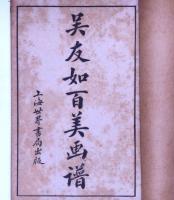 吴友如百美画谱
上海世界书局出版